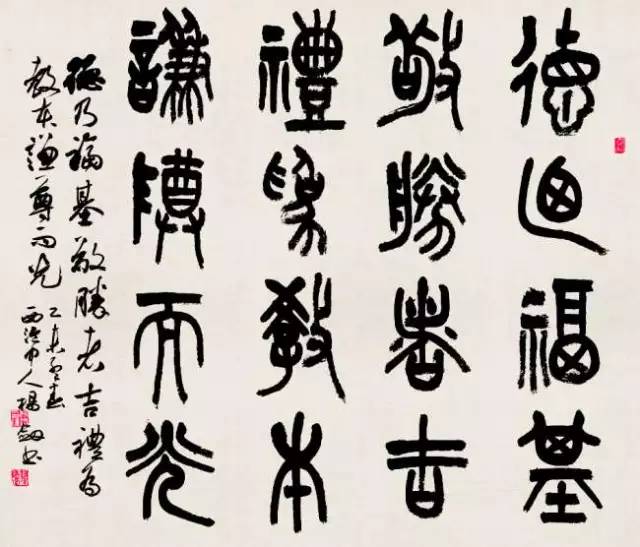 德迺福基
敬勝者吉
禮為教本
謙尊而光
德乃福基敬勝者吉禮為
教本謙尊而光
乙未
西泠中人楊